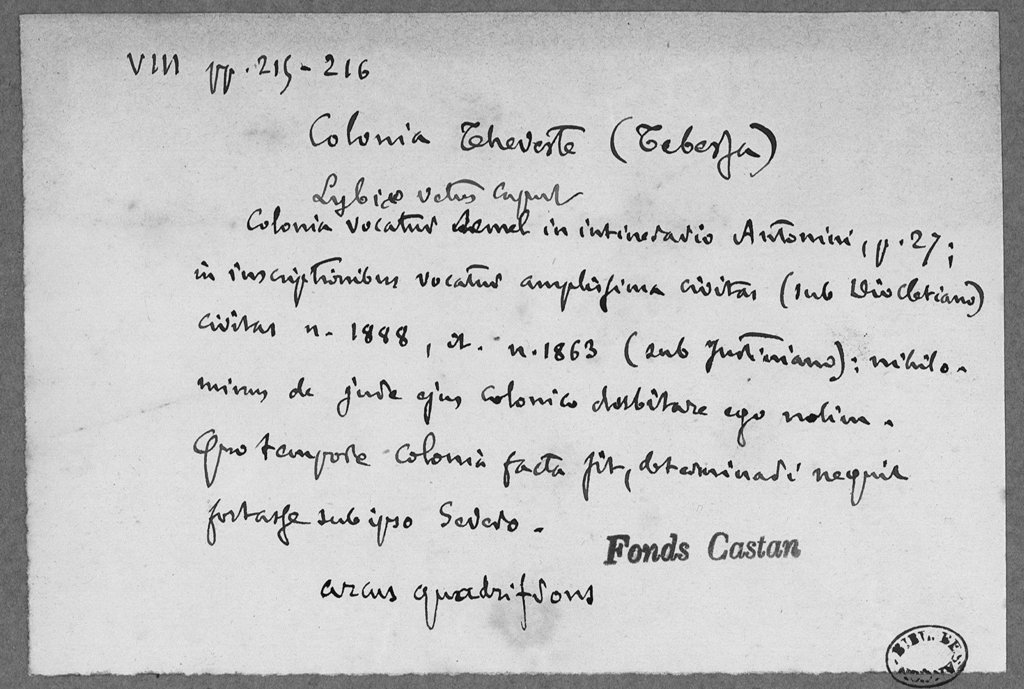 VIII pp. 215-216
Colonia Theveste (Tebessa)
Lybiæ vetus caput
Colonia vocatur semel in intinerario Antonini, p. 27;
in inscriptionibus vocatur amplissima civitas (sub Diocletiano)
civitas n. 1888, et. n. 1863 (sub Justiniano); nihilo-
minus de jure ejus colonico dubitare ego nolim.
Quo tempore colonia facta sit, determinari nequit
fortasse sub ipso Severo.
Fonds Castan
arcus quadrifrons
BIBL. BESAN